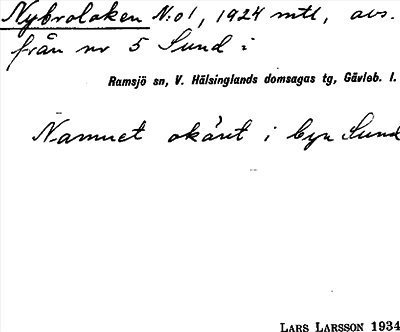 Nybrolaken N:o1, 1924 mtl, avs.
från nr 5 Sund i
Ramsjö sn, V. Hälsinglands domsagas tg, Gävleb. l.
Namnet okänt i byn Sund
LARS LARSSON 1934